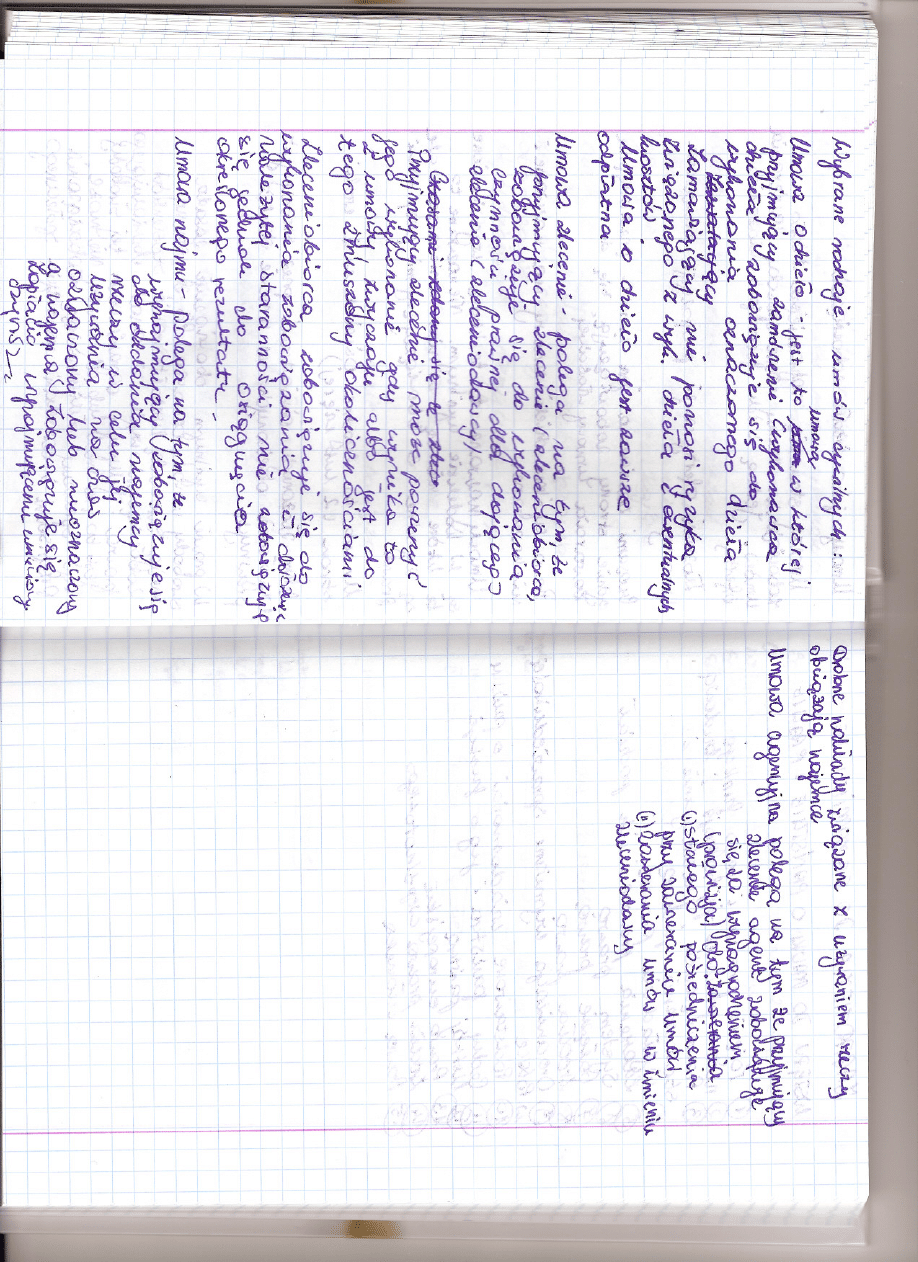 Wybrane rodzaje umów cywilnych:
Umowa o dzieło - jest to umowa w której
przyjmujący zamówienie (wykonawca
dzieła) zobowiązuje się do
wykonania oznaczonego dzieła
Zamawiający nie ponosi ryzyka
związanego z wyk. dzieła ewentualnych
kosztów
Umowa o dzieło jest zawsze
odpłatna
Umowa zlecenie - polega na tym, że
przyjmujący zlecenie (zleceniobiorca,
zobowiązuje się do wykonania
czynności prawnej dla dającego
zlecenie (zleceniodawcy)
Przyjmujący zlecenie może powierzyć
jego wykonanie gdy wynika to
z umowy, zwyczaju albo jest do
tego zmuszony okolicznościami
Zleceniobiorca zobowiązuje się do
wykonania zobowiązania z
należytej staranności nie zobowiązuje
się jednak do osiągnięcia
określonego rezultatu.
Umowa najmu - Polega na tym, że
wynajmujący (zobowiązuje się
do oddania najemcy
rzeczy w celu jej
używania na czas
oznaczony lub nieoznaczony
a najemca zobowiązuje się
płacić wynajmującemu umówiony
czynsz
Drobne nakłady związane z używaniem rzeczy
obciążają najemcę
Umowa agencyjna polega na tym że przyjmujący
zlecenie agent zobowiązuje
się za wynagrodzeniem
(prowizja) do: zawierania
(i) stałego pośredniczenia
przy zawieraniu umów
(ii) Zawierania umów w imieniu
zleceniodawcy